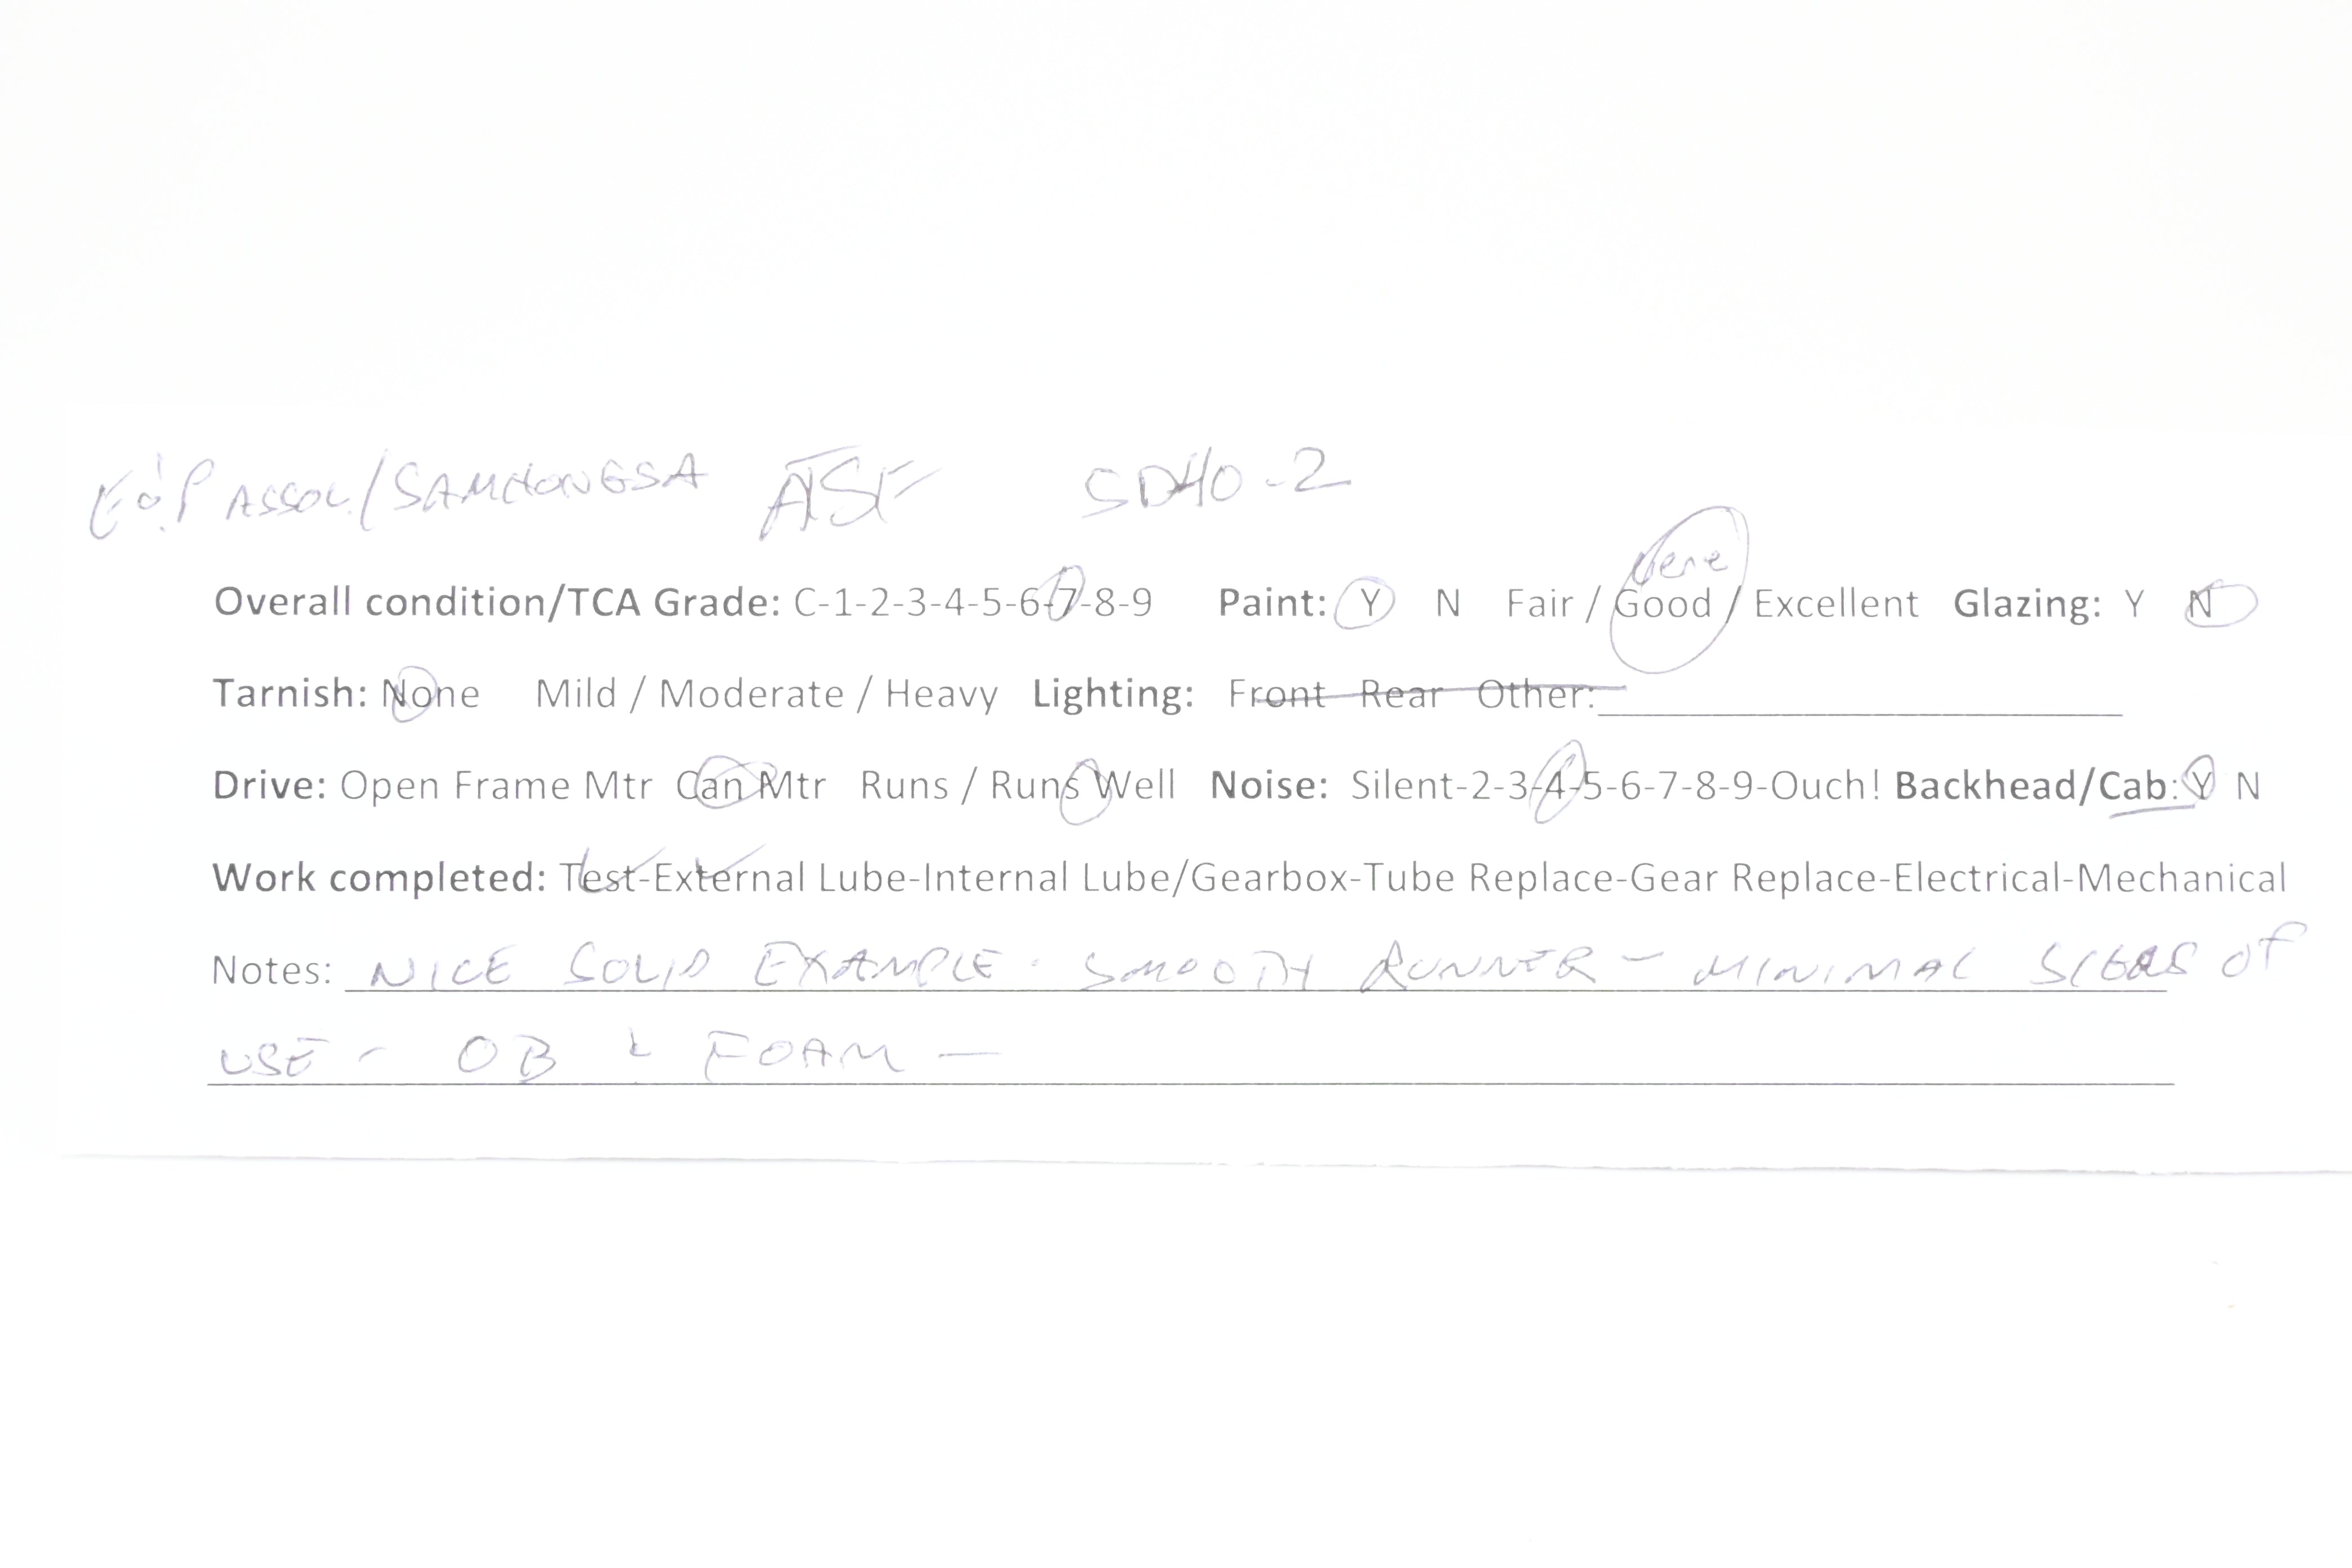 ASSOC/SAMHONGSA ATSF SD40-2
Very
Overall condition/TCA Grade: C-1-2-3-4-5-6-7-8-9 Paint: Y N Fair / Good / Excellent Glazing: Y N
Tarnish: None Mild / Moderate / Heavy Lighting: Front Rear Other:
Drive: Open Frame Mtr Can Mtr Runs / Runs Well Noise: Silent-2-3-4-5-6-7-8-9-Ouch! Backhead/Cab: Y N
Work completed: Test-External Lube-Internal Lube/Gearbox-Tube Replace-Gear Replace-Electrical-Mechanical
Notes: NICE SOLID EXAMPLE. SMOOTH RUNNER - MINIMAL SIGNS OF
USE - OB & FOAM -